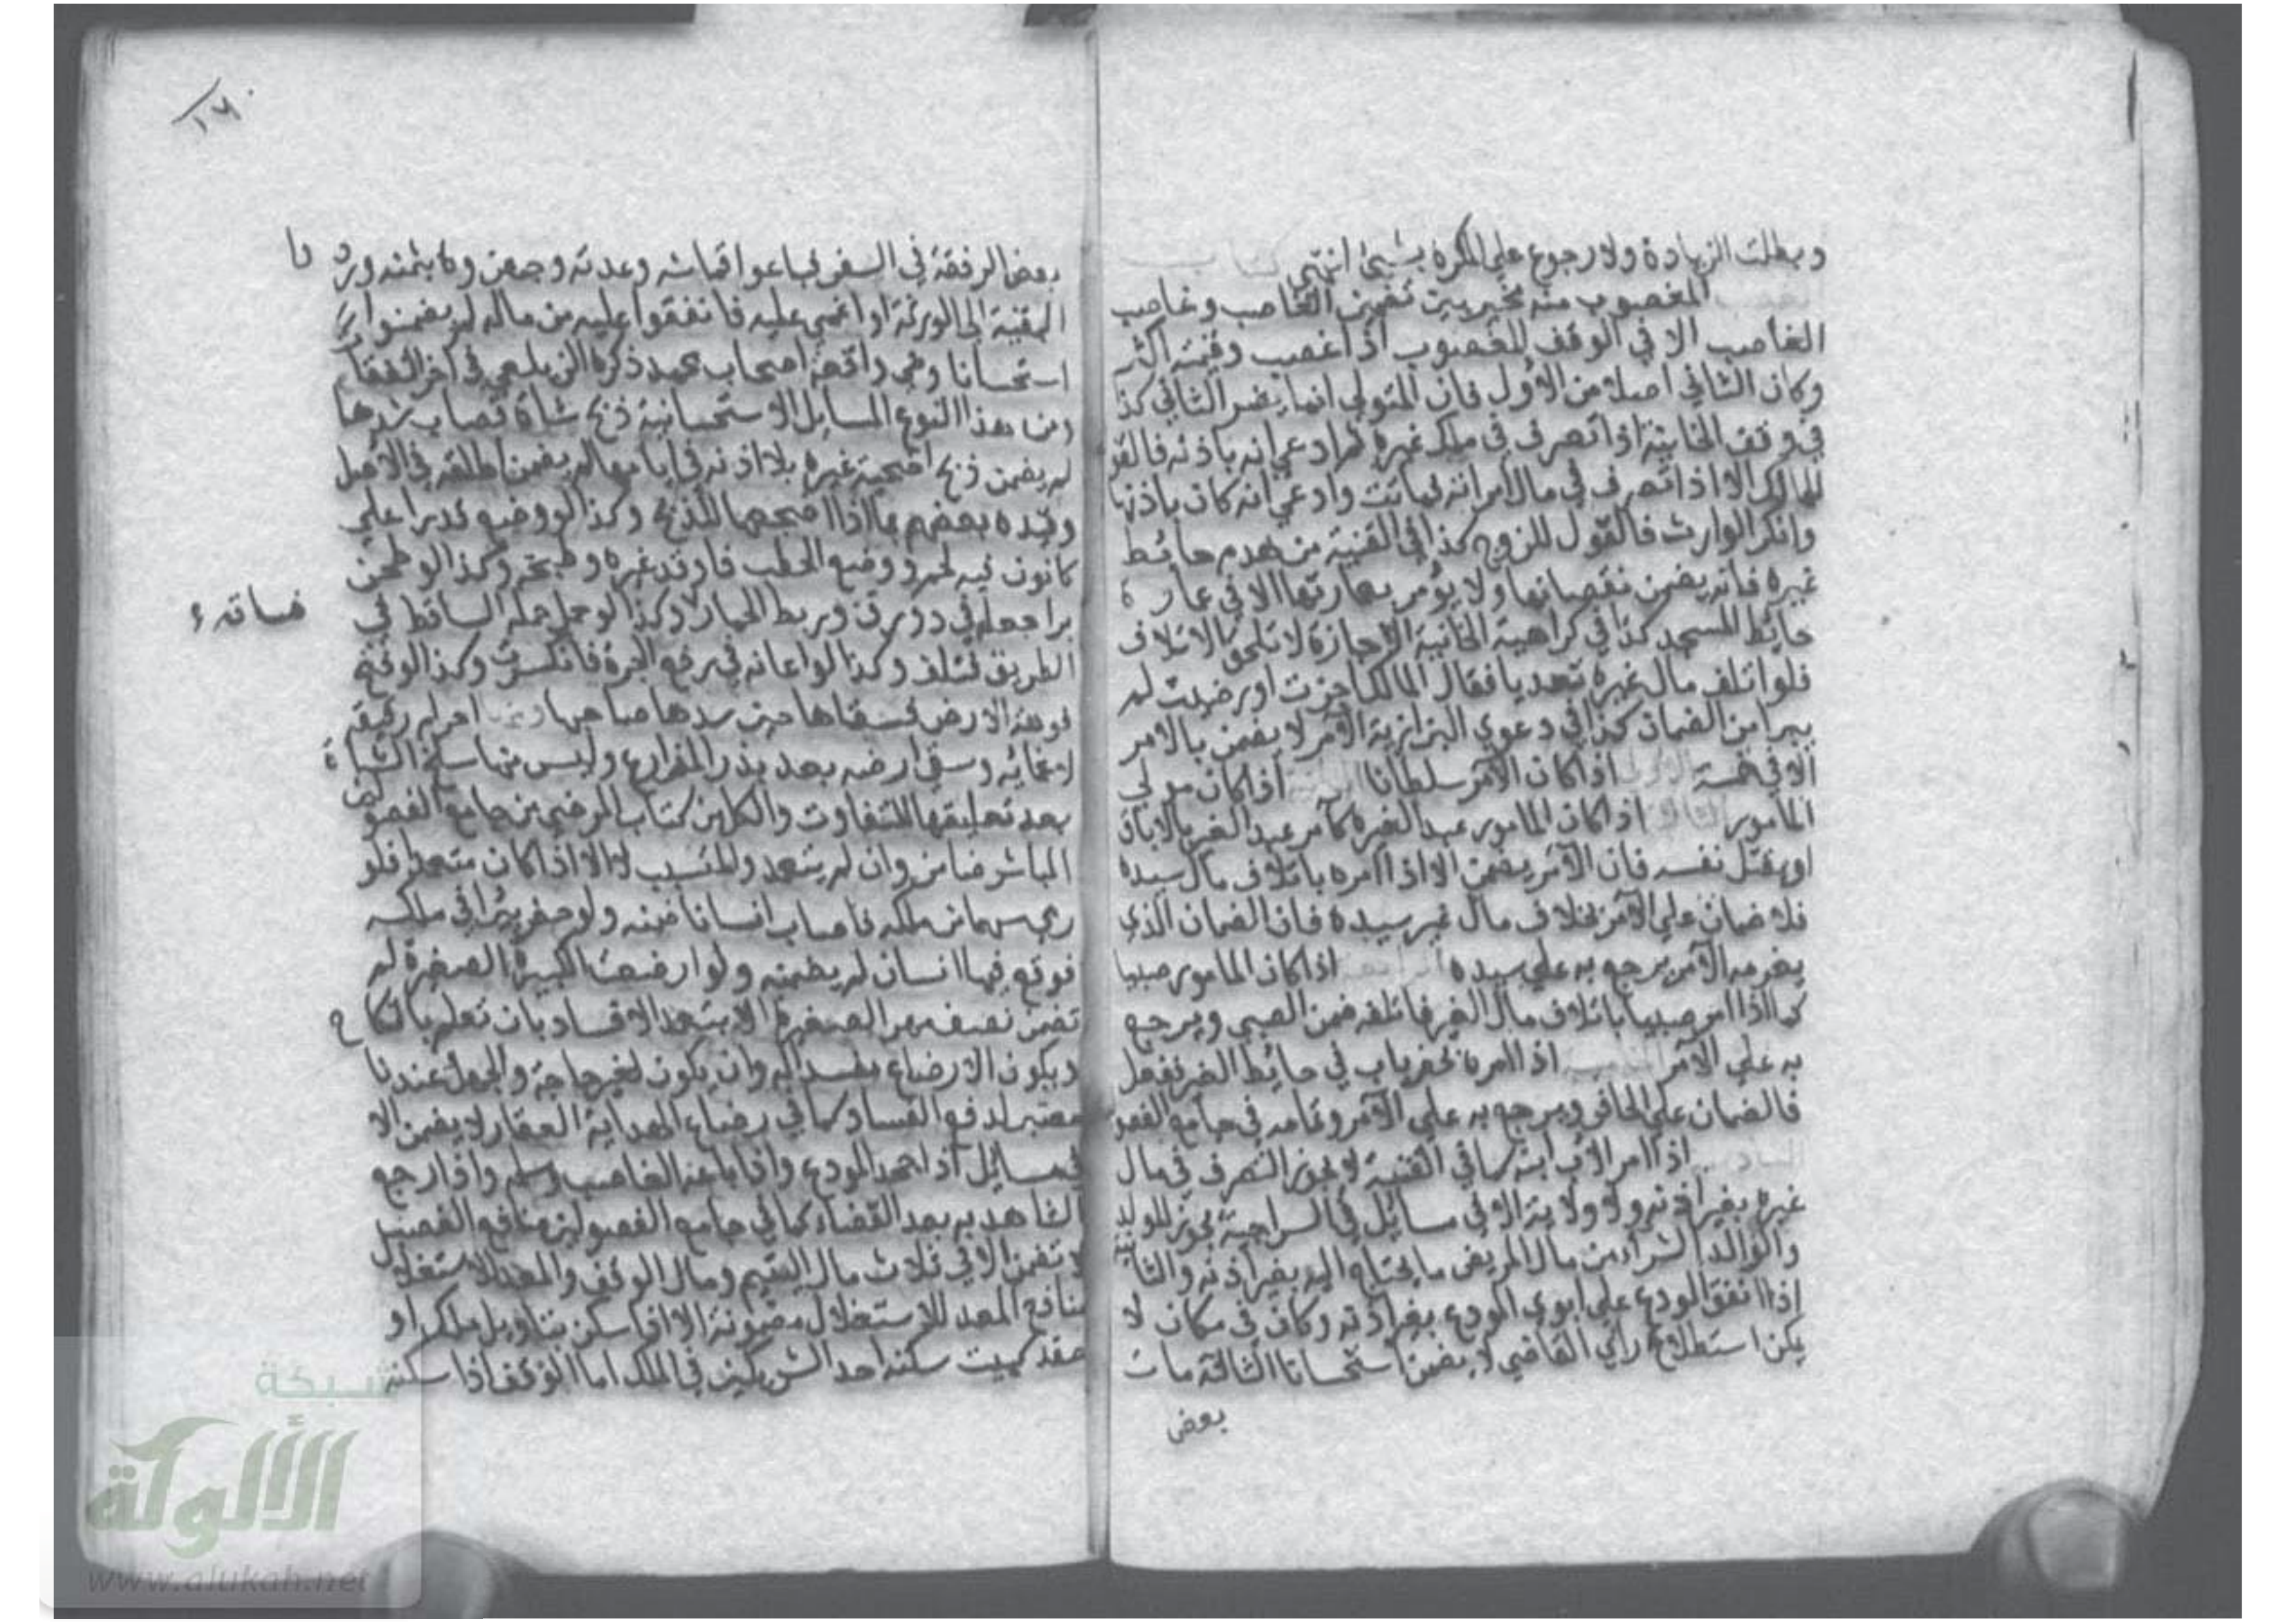 وبطلت الزيادة ولا رجوع علي المكره بشيئ انتهي كتاب
الغصب المغصوب منه مخير بين تضمين الغاصب وغاصب
الغاصب الا في الوقف المغصوب اذا غصب وقيمته اكثر
وكان الثاني املا من الاول فان المتولي انما يضمن الثاني كذا
في وقف الخانية اذا تصرف في ملك غيره ثم ادعي انه باذنه فالقول
للمالك الا اذا تصرف في مال امراته فماتت وادعي انه كان باذنها
وانكر الوارث فالقول للزوج كذا في القنية من هدم حائط
غيره فانه يضمن نقصانها ولا يؤمر بعمارتها الا في عمارة
حايط المسجد كذا في كراهية الخانية الاجازة لا تلحق الاتلاف
فلو اتلف مال غيره تعديا فقال المالك اجزت او رضيت لم
يبرا من الضمان كذا في دعوي البزازية الآمر لا يضمن بالامر
الا في خمسة الاولي اذا كان الآمر سلطانا اذا كان مولي
المامور الثالثة اذا كان المامور عبد الغيره كآمر عبد الغير بالاباق
او بقتل نفسه فان الآمر يضمن الا اذا امره باتلاف مال سيده
فلا ضمان علي الآمر بخلاف مال غير سيده فان الضمان الذي
يغرمه الآمر يرجع به علي سيده الرابعة اذا كان المامور صبيا
كما اذا امر صبيا باتلاف مال الغير فاتلفه ضمن الصبي ويرجع
به علي الآمر اذا امره بحفر باب في حائط الغير ففعل
فالضمان علي الحافر ويرجع به علي الآمر وتمامه في جامع الفصولين
اذا امر الاب ابنه كما في القنية لا يجوز التصرف في مال
غيره بغير اذنه ولا ولاية الا في مسائل في السراجية يجوز للولد
والوالد الشراء من مال المريض ما يحتاج اليه بغير اذنه والثانية
اذا انفق المودع علي ابوي المودع بغير اذنه وكان في مكان لا
يمكن استطلاع راي القاضي لا يضمن استحسانا الثالثة مات
بعض
١٦٠
بعض الرفقة في السفر فباعوا قماشه وعدته وجهزوه بثمنه وردوا
البقية الي الورثة او اغمي عليه فانفقوا عليه من ماله لم يضمنوا
استحسانا وهي واقعة اصحاب محمد ذكره الزيلعي في اخر النفقات
ومن هذا النوع المسايل الاستحسانية ذبح شاة قصاب شدها
لم يضمن ذبح اضحية غيره بلا اذنه في ايامها لم يضمن اطلقه في الاصل
وقيده بعضهم بما اذا اضجعها للذبح وكذا لو وضع قدرا علي
كانون فيه لحم ووضع الحطب فاوقد غيره وطبخه وكذا لو طحن
برا جعله في دورق وربط الحمار وكذا لو حمل حمله الساقط في
الطريق فتلف وكذا لو اعانه في رفع الجرة فانكسرت وكذا لو فتح
فوهة الارض فسقاها حين سدها صاحبها احرام رفيقه
لاغمائه وسقي ارضه بعد بذر المزارع وليس منها سلخ الشاة
بعد تعليقها للتفاوت والكل من كتاب المرضي من جامع الفصولين
المباشر ضامن وان لم يتعمد والمتسبب لا الا اذا كان متعمدا فلو
رمي سهما من ملكه فاصاب انسانا ضمنه ولو حفر بيرا في ملكه
فوقع فيها انسان لم يضمنه ولو ارضعت الكبيرة الصغيرة لم
تضمن نصف مهر الصغيرة الا بتعمد الافساد بان تعلم بالنكاح
ويكون الارضاع مفسدا له وان يكون لغير حاجة والجهل عندنا
معتبر لدفع الفساد كما في رضاع الهداية العقار لا يضمن الا
في مسايل اذا جحد المودع واذا باعه الغاصب وسلمه واذا رجع
الشاهد به بعد القضاء كما في جامع الفصولين منافع الغصب
لا تضمن الا في ثلاث مال اليتيم ومال الوقف والمعد للاستغلال
منافع المعد للاستغلال مضمونة الا اذا سكن بتاويل ملك او
عقد كبيت سكنه احد الشريكين في الملك اما الوقف اذا سكنه
شبكة
الألوكة
www.alukah.net